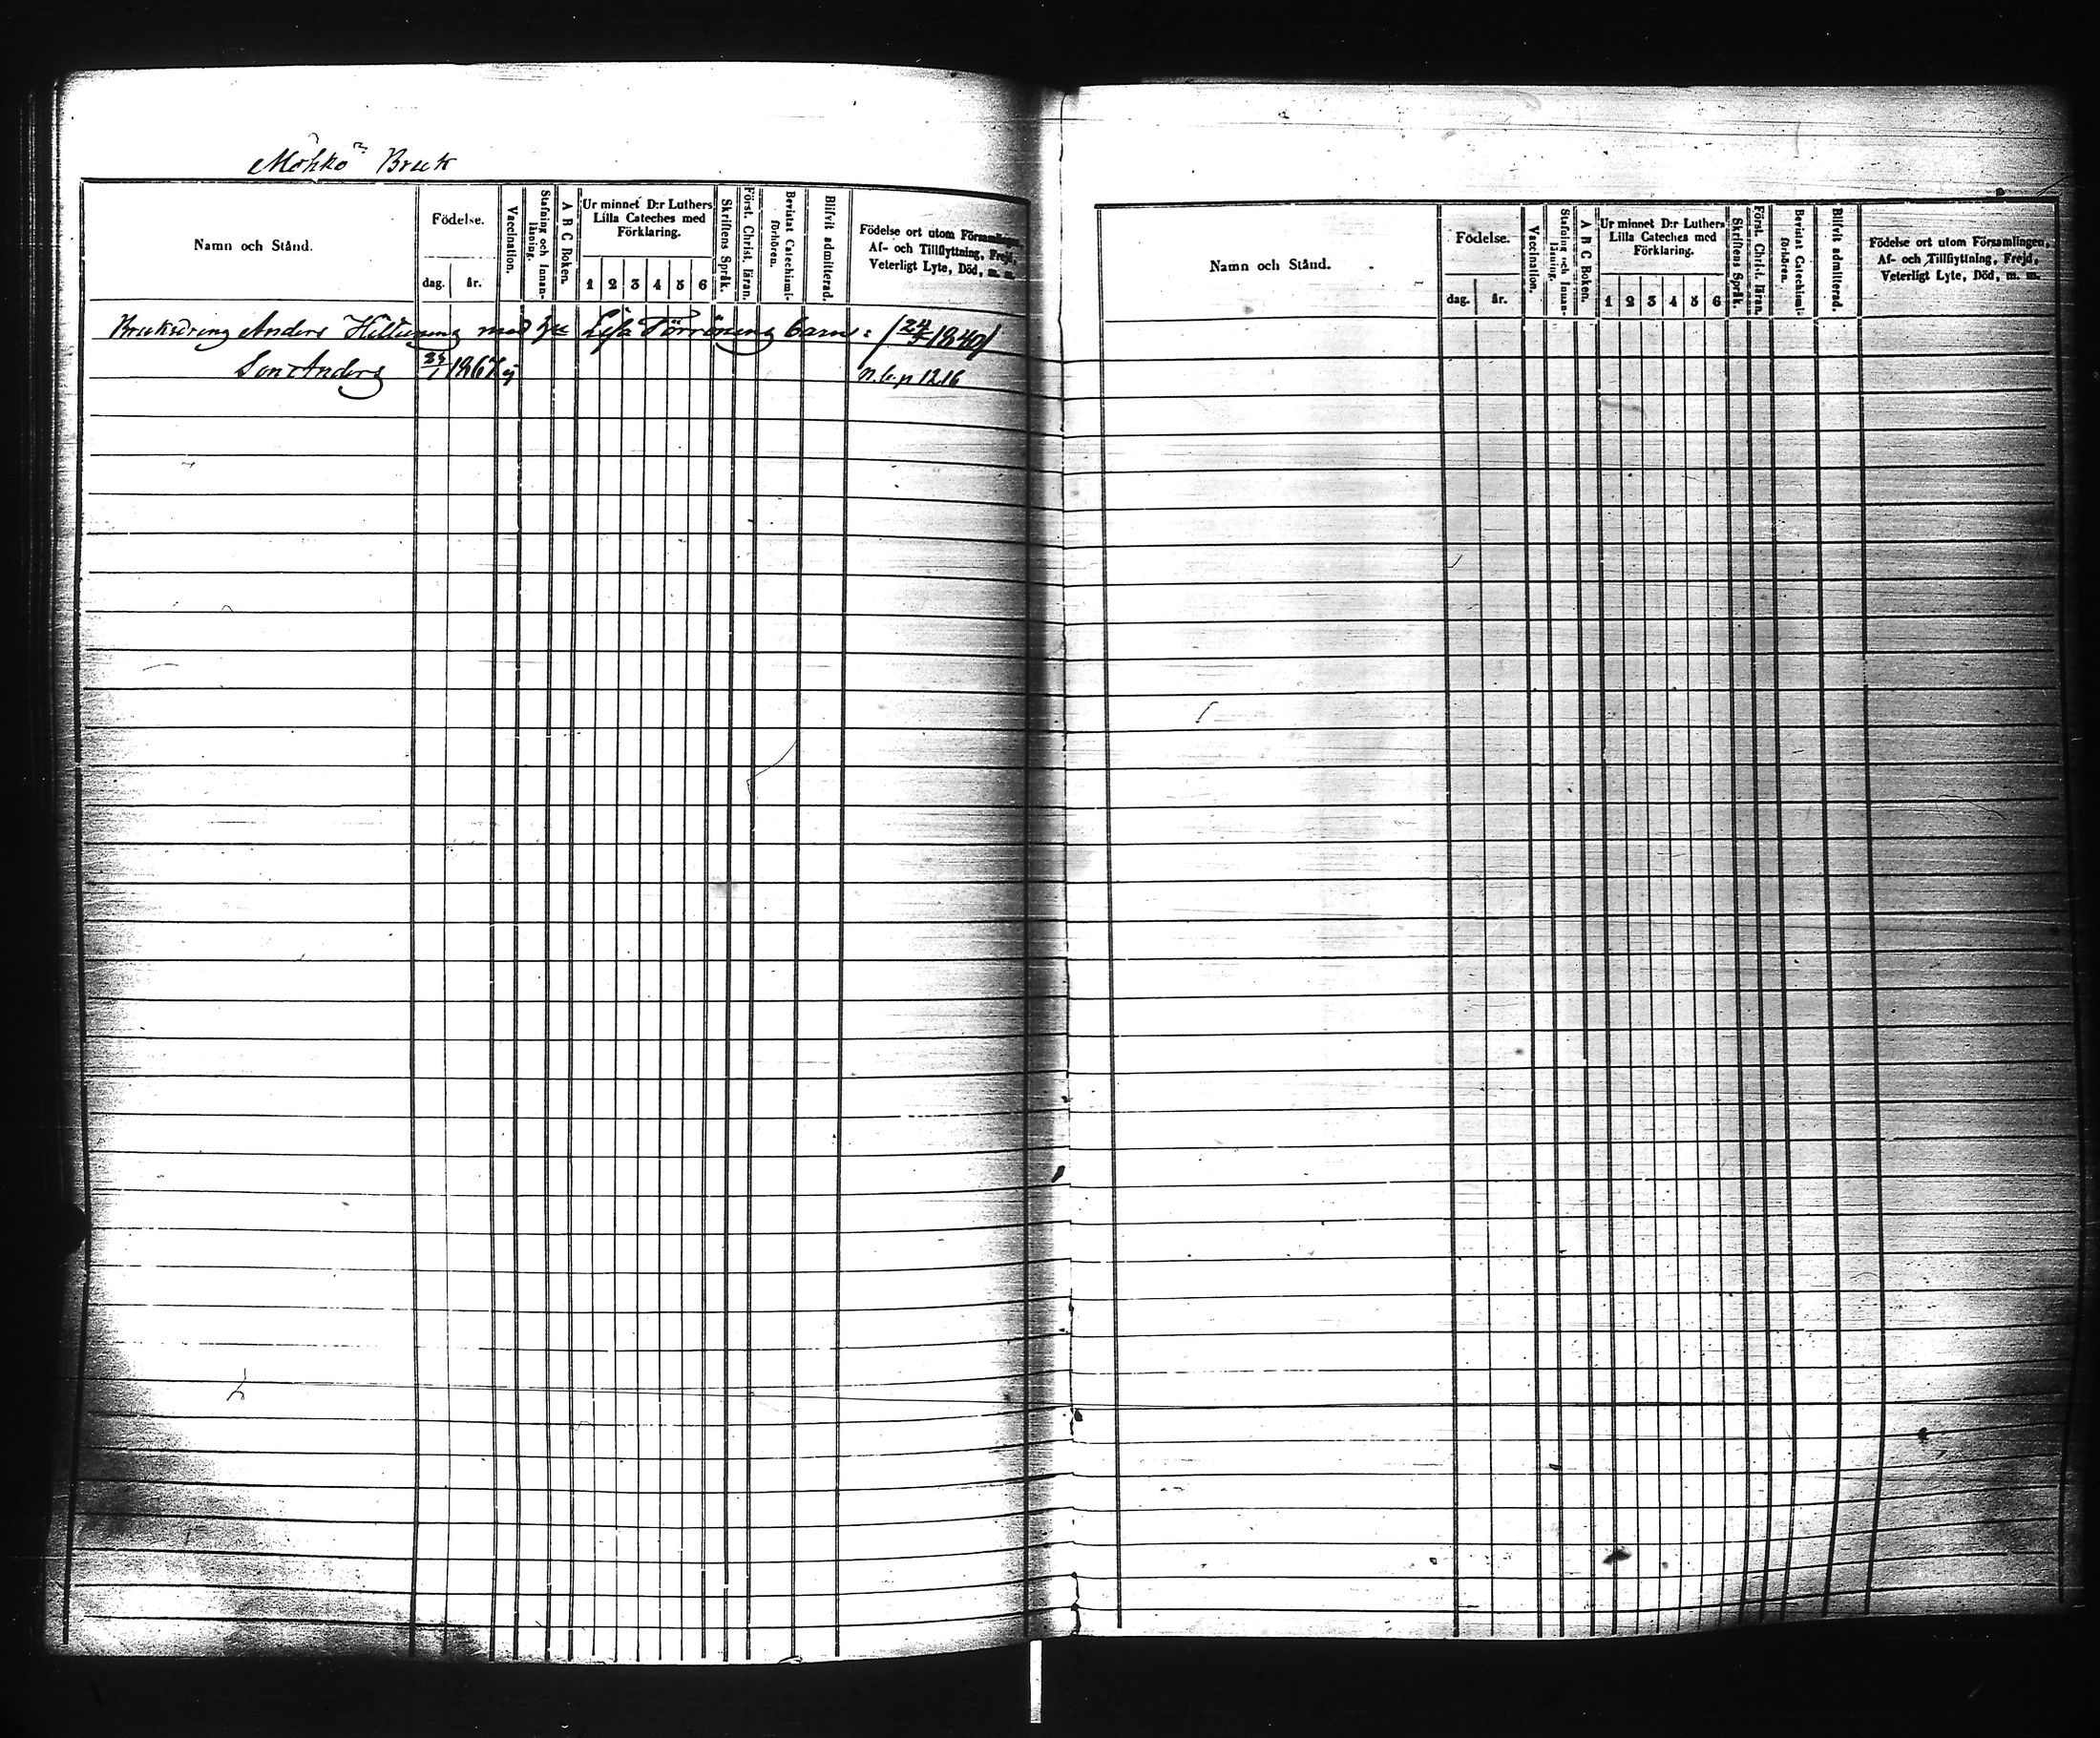 Möhkö Bruk
Namn och Stånd.
Födelse.
dag. år.
Vaccination.
Stafning och Innan-läsning.
A B C Boken.
Ur minnet D:r Luthers
Lilla Cateches med
Förklaring.
1 2 3 4 5 6
Skriftens Språk.
Först. Christ. läran.
Bevistat Catechismi-förhören.
Blifvit admitterad.
Födelse ort utom Församlingen,
Af- och Tillflyttning, Frejd,
Veterligt Lyte, Död, m. m.
Anders Hiltunens med Lisa Törrönens barn: (24/7 1840)
Son Anders 1867 n.b.p 1216
Namn och Stånd.
Födelse.
dag. år.
Vaccination.
Stafning och Innan-läsning.
A B C Boken.
Ur minnet D:r Luthers
Lilla Cateches med
Förklaring.
1 2 3 4 5 6
Skriftens Språk.
Först. Christ. läran.
Bevistat Catechismi-förhören.
Blifvit admitterad.
Födelse ort utom Församlingen,
Af- och Tillflyttning, Frejd,
Veterligt Lyte, Död, m. m.